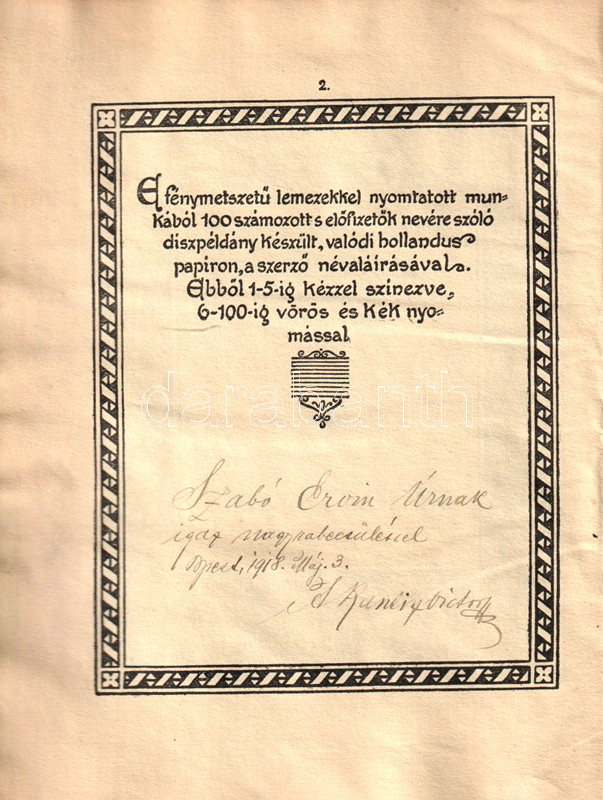 2.
E fénymetszetű lemezekkel nyomtatott mun-
kából 100 számozott s előfizetők nevére szóló
diszpéldány készült, valódi hollandus
papiron, a szerző névaláirásával.
Ebből 1-5-ig kézzel szinezve,
6-100-ig vörös és kék nyo-
mással
darabanth
Szabó Ervin Úrnak
igaz nagyrabecsüléssel
Bpest, 1918. Máj. 3.